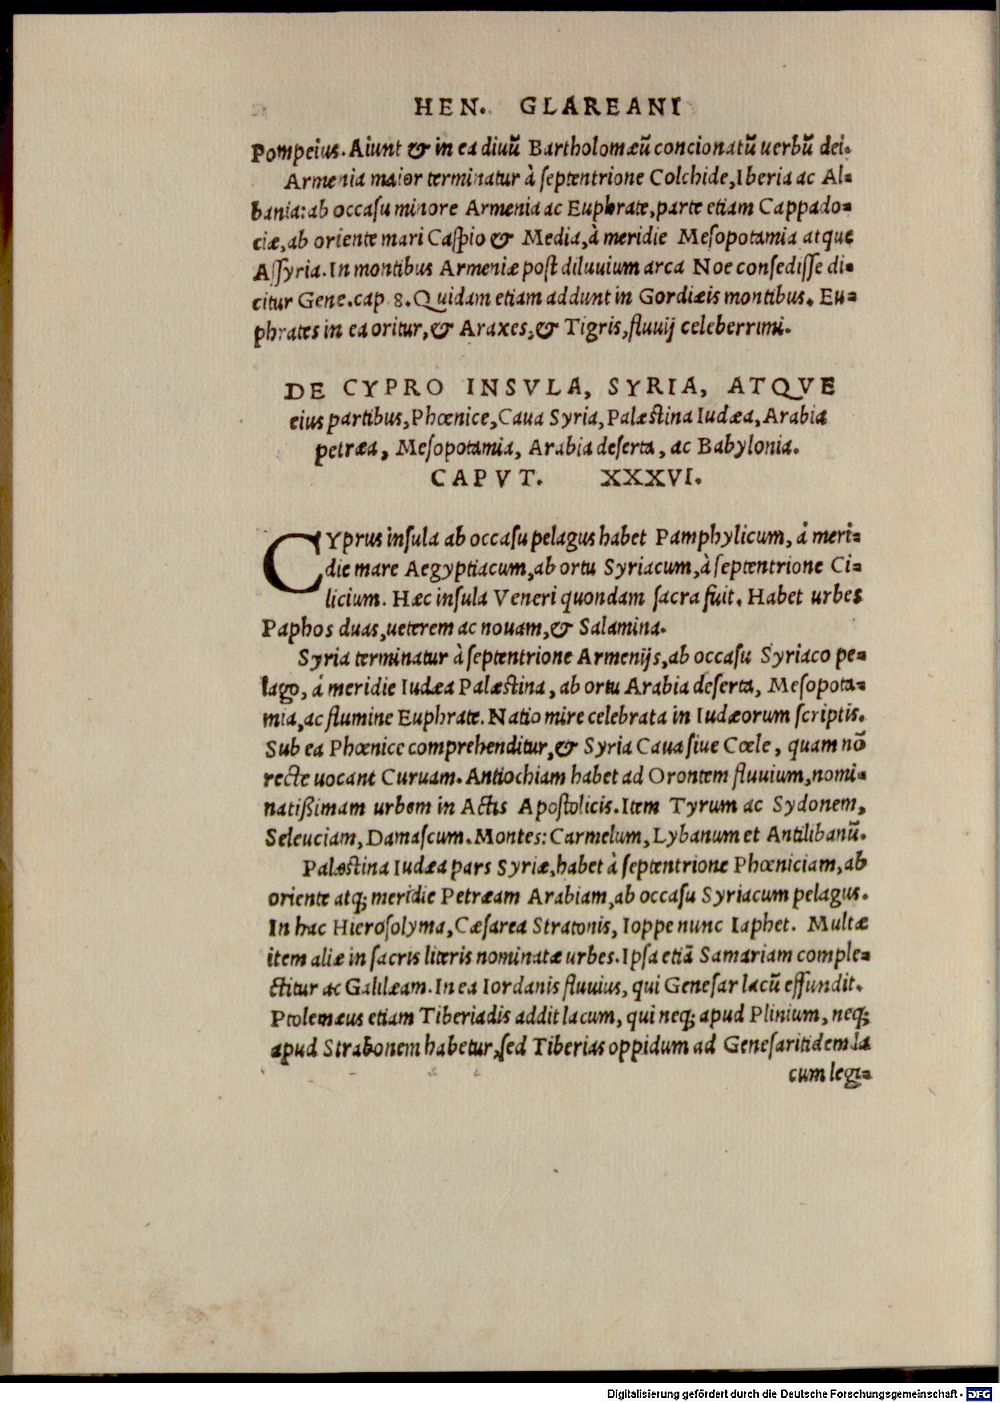 HEN. GLAREANI
Pompeius. Aiunt & in ea diuū Bartholomæū concionatū uerbū dei.
Armenia maior terminatur à septentrione Colchide, Iberia ac Al-
bania: ab occasu minore Armenia ac Euphrate, parte etiam Cappado-
ciæ, ab oriente mari Caspio & Media, à meridie Mesopotamia atque
Assyria. In montibus Armeniæ post diluuium arca Noe consedisse di-
citur Gene. cap 8. Quidam etiam addunt in Gordiæis montibus. Eu-
phrates in ea oritur, & Araxes, & Tigris, fluuij celeberrimi.
DE CYPRO INSVLA, SYRIA, ATQVE
eius partibus, Phœnice, Caua Syria, Palæstina Iudæa, Arabia
petræa, Mesopotamia, Arabia deserta, ac Babylonia.
CAPVT. XXXVI.
CYprus insula ab occasu pelagus habet Pamphylicum, à meri-
die mare Aegyptiacum, ab ortu Syriacum, à septentrione Ci-
licium. Hæc insula Veneri quondam sacra fuit. Habet urbes
Paphos duas, ueterem ac nouam, & Salamina.
Syria terminatur à septentrione Armenijs, ab occasu Syriaco pe-
lago, à meridie Iudæa Palæstina, ab ortu Arabia deserta, Mesopota-
mia, ac flumine Euphrate. Natio mire celebrata in Iudæorum scriptis.
Sub ea Phœnice comprehenditur, & Syria Caua siue Cœle, quam nō
recte uocant Curuam. Antiochiam habet ad Orontem fluuium, nomi-
natißimam urbem in Actis Apostolicis. Item Tyrum ac Sydonem,
Seleuciam, Damascum. Montes: Carmelum, Lybanum et Antilibanū.
Palæstina Iudæa pars Syriæ, habet à septentrione Phœniciam, ab
oriente atq; meridie Petræam Arabiam, ab occasu Syriacum pelagus.
In hac Hierosolyma, Cæsarea Stratonis, Ioppe nunc Iaphet. Multæ
item aliæ in sacris literis nominatæ urbes. Ipsa etiā Samariam comple-
ctitur ac Galilæam. In ea Iordanis fluuius, qui Genesar lacū effundit.
Ptolemæus etiam Tiberiadis addit lacum, qui neq; apud Plinium, neq;
apud Strabonem habetur, sed Tiberias oppidum ad Genesaritidem la
cum legi-
Digitalisierung gefördert durch die Deutsche Forschungsgemeinschaft - DFG